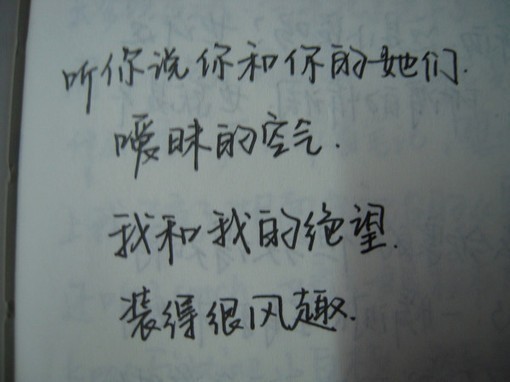 听你说你和你的她们.
暧昧的空气.
我和我的绝望.
装得很风趣.